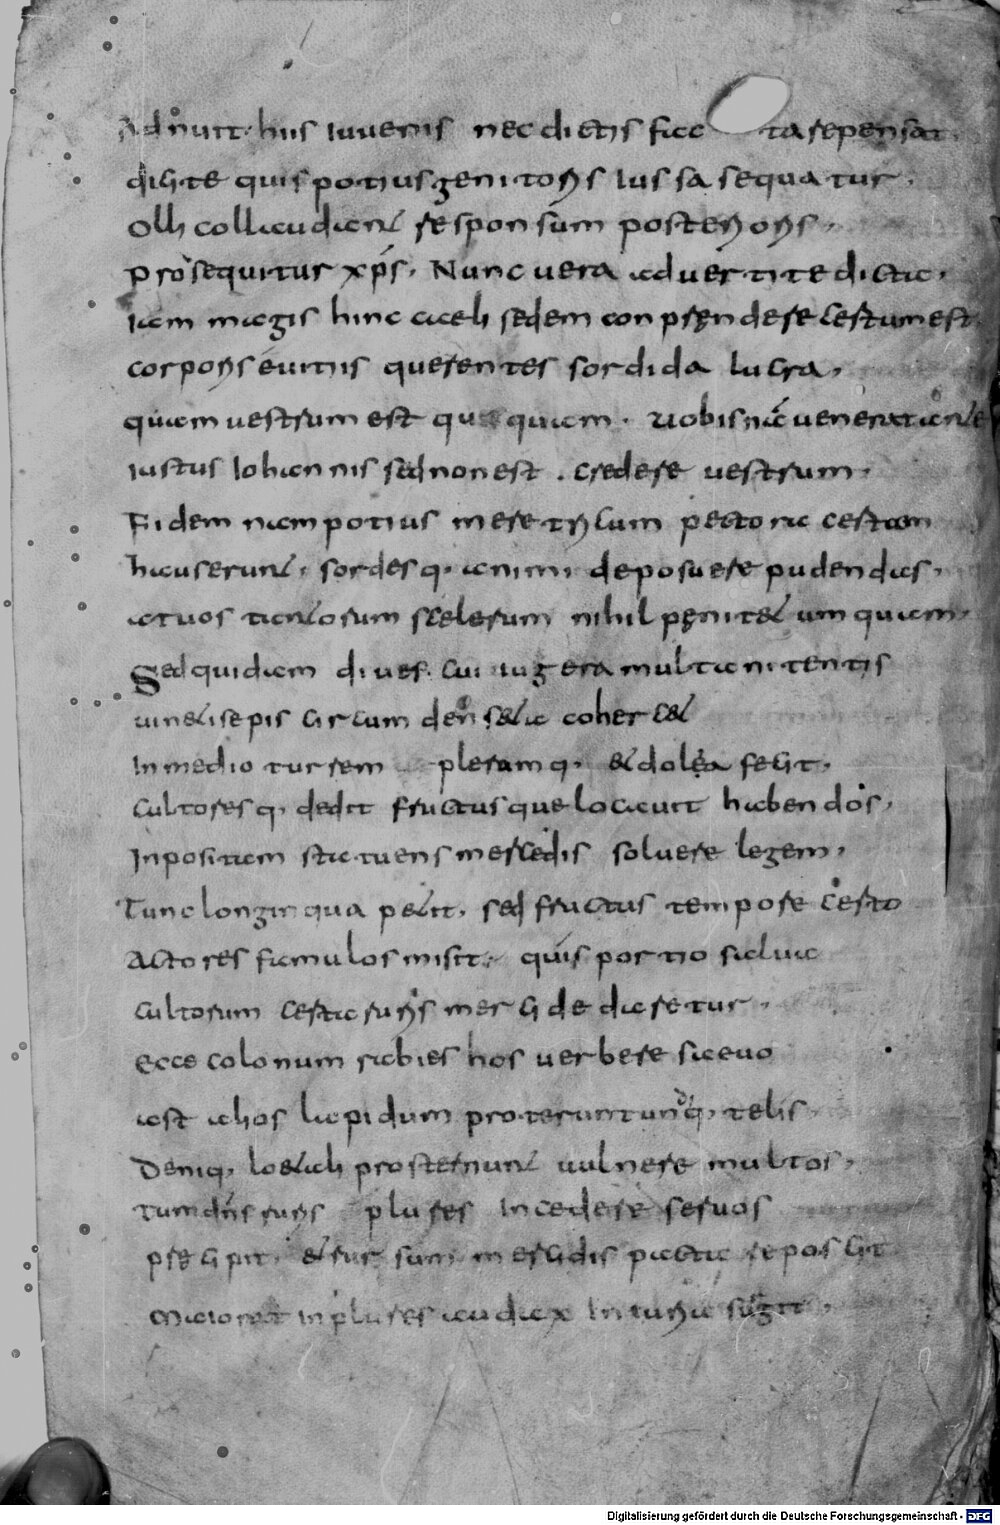 Adnuit. hiis iuvenis nec dictis fac ta repensat.
dicite quis potius genitoris iussa sequatur.
Olli collaudant responsum posterioris.
Prosequitur xp̄s. Nunc vera advertite dicta.
iam magis hinc caeli sedem conprendere certum est
corporis evitiis querentes sordida lucra.
quam vestrum est quisquam. Vobis nā veneratione
iustus Iohannis sed non est. credere vestrum.
Fidem nam potius meretricum pectora certam
hauserunt. sordesq. animi deposuere pudendas.
at vos tantorum scelerum nihil pęnitet umquam.
Sed quidam dives. cui iugera multa nitentis
vinetisepis circum densata cohercet
In medio turrem pleramq. et dolea fecit.
Cultoresq. dedit fructusque locavit habendos.
Inpositam statuens mercedis solvere legem.
Tunc longinqua petit. sed fructus tempore certo
Actores famulos misit. quis portio salva
Cultorum certa ruris mercede daretur.
Ecce colonum rabies hos verbere saevo
ast alios lapidum proterunt undiq. telis
Deniq. loetali prosternunt vulnere multos.
Tum dn̄s ruris plures incedere servos
pręcipit. et rursum mercedis pacta reposcit
Maior at in plures audax iniuria surgit.